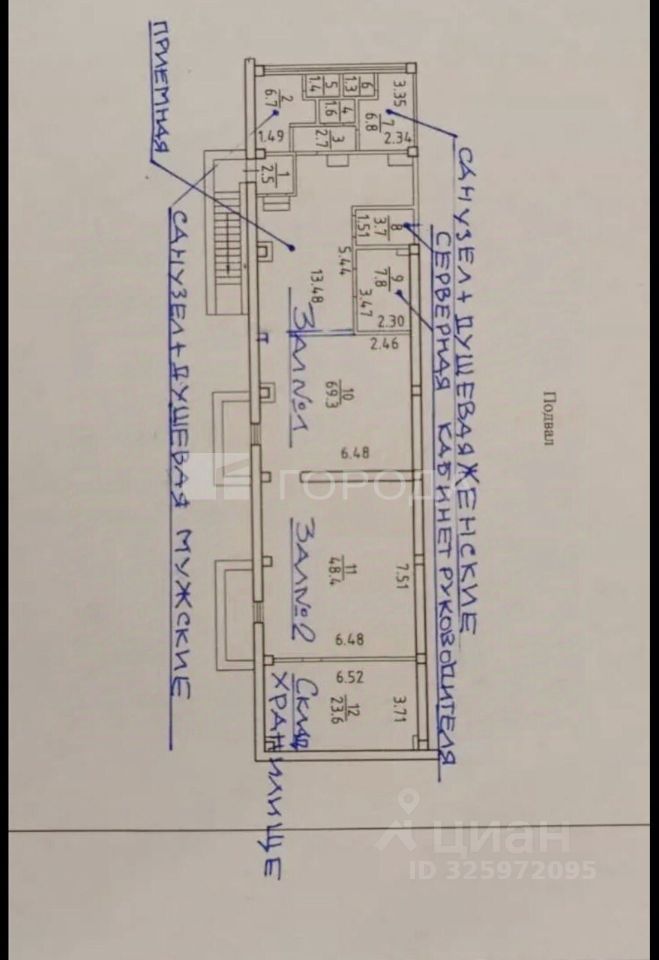 Подвал
САНУЗЕЛ+ДУШЕВАЯ ЖЕНСКИЕ
СЕРВЕРНАЯ КАБИНЕТ РУКОВОДИТЕЛЯ
3.35
6
1.3
5
1.4
4
1.6
7
6.8
2.34
2
6.7
1.49
3
2.7
1
2.5
8
3.7
1.51
9
7.8
3.47
2.30
5.44
13.48
2.46
ЗАЛ №1
10
69.3
6.48
ГОРОД
ЗАЛ №2
11
48.4
7.51
6.48
6.52
12
23.6
3.71
ХРАНИЛИЩЕ
ПРИЕМНАЯ
САНУЗЕЛ+ДУШЕВАЯ МУЖСКИЕ
циан
ID 325972095